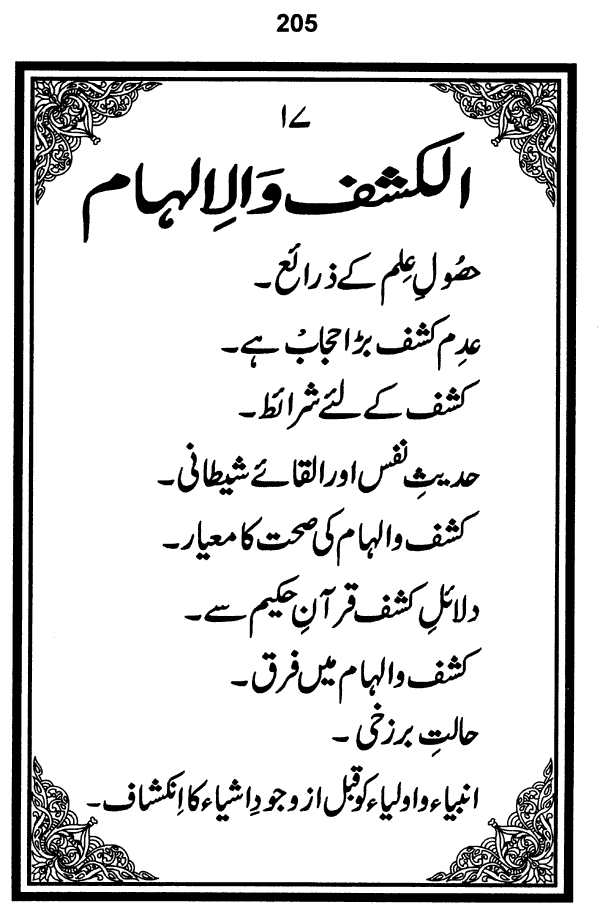 205
۱۷
الکشف وَالاِلہام
حصُولِ عِلم کے ذرائع۔
عدمِ کشف بڑا حجابْ ہے۔
کشف کے لئے شرائط۔
حدیثِ نفس اور القائے شیطانی۔
کشف والہام کی صحت کا معیار۔
دلائلِ کشف قرآنِ حکیم سے۔
کشف والہام میں فرق۔
حالتِ برزخی۔
انبیاء واولیاء کو قبل از وجودِ اشیاء کا اِنکشاف۔